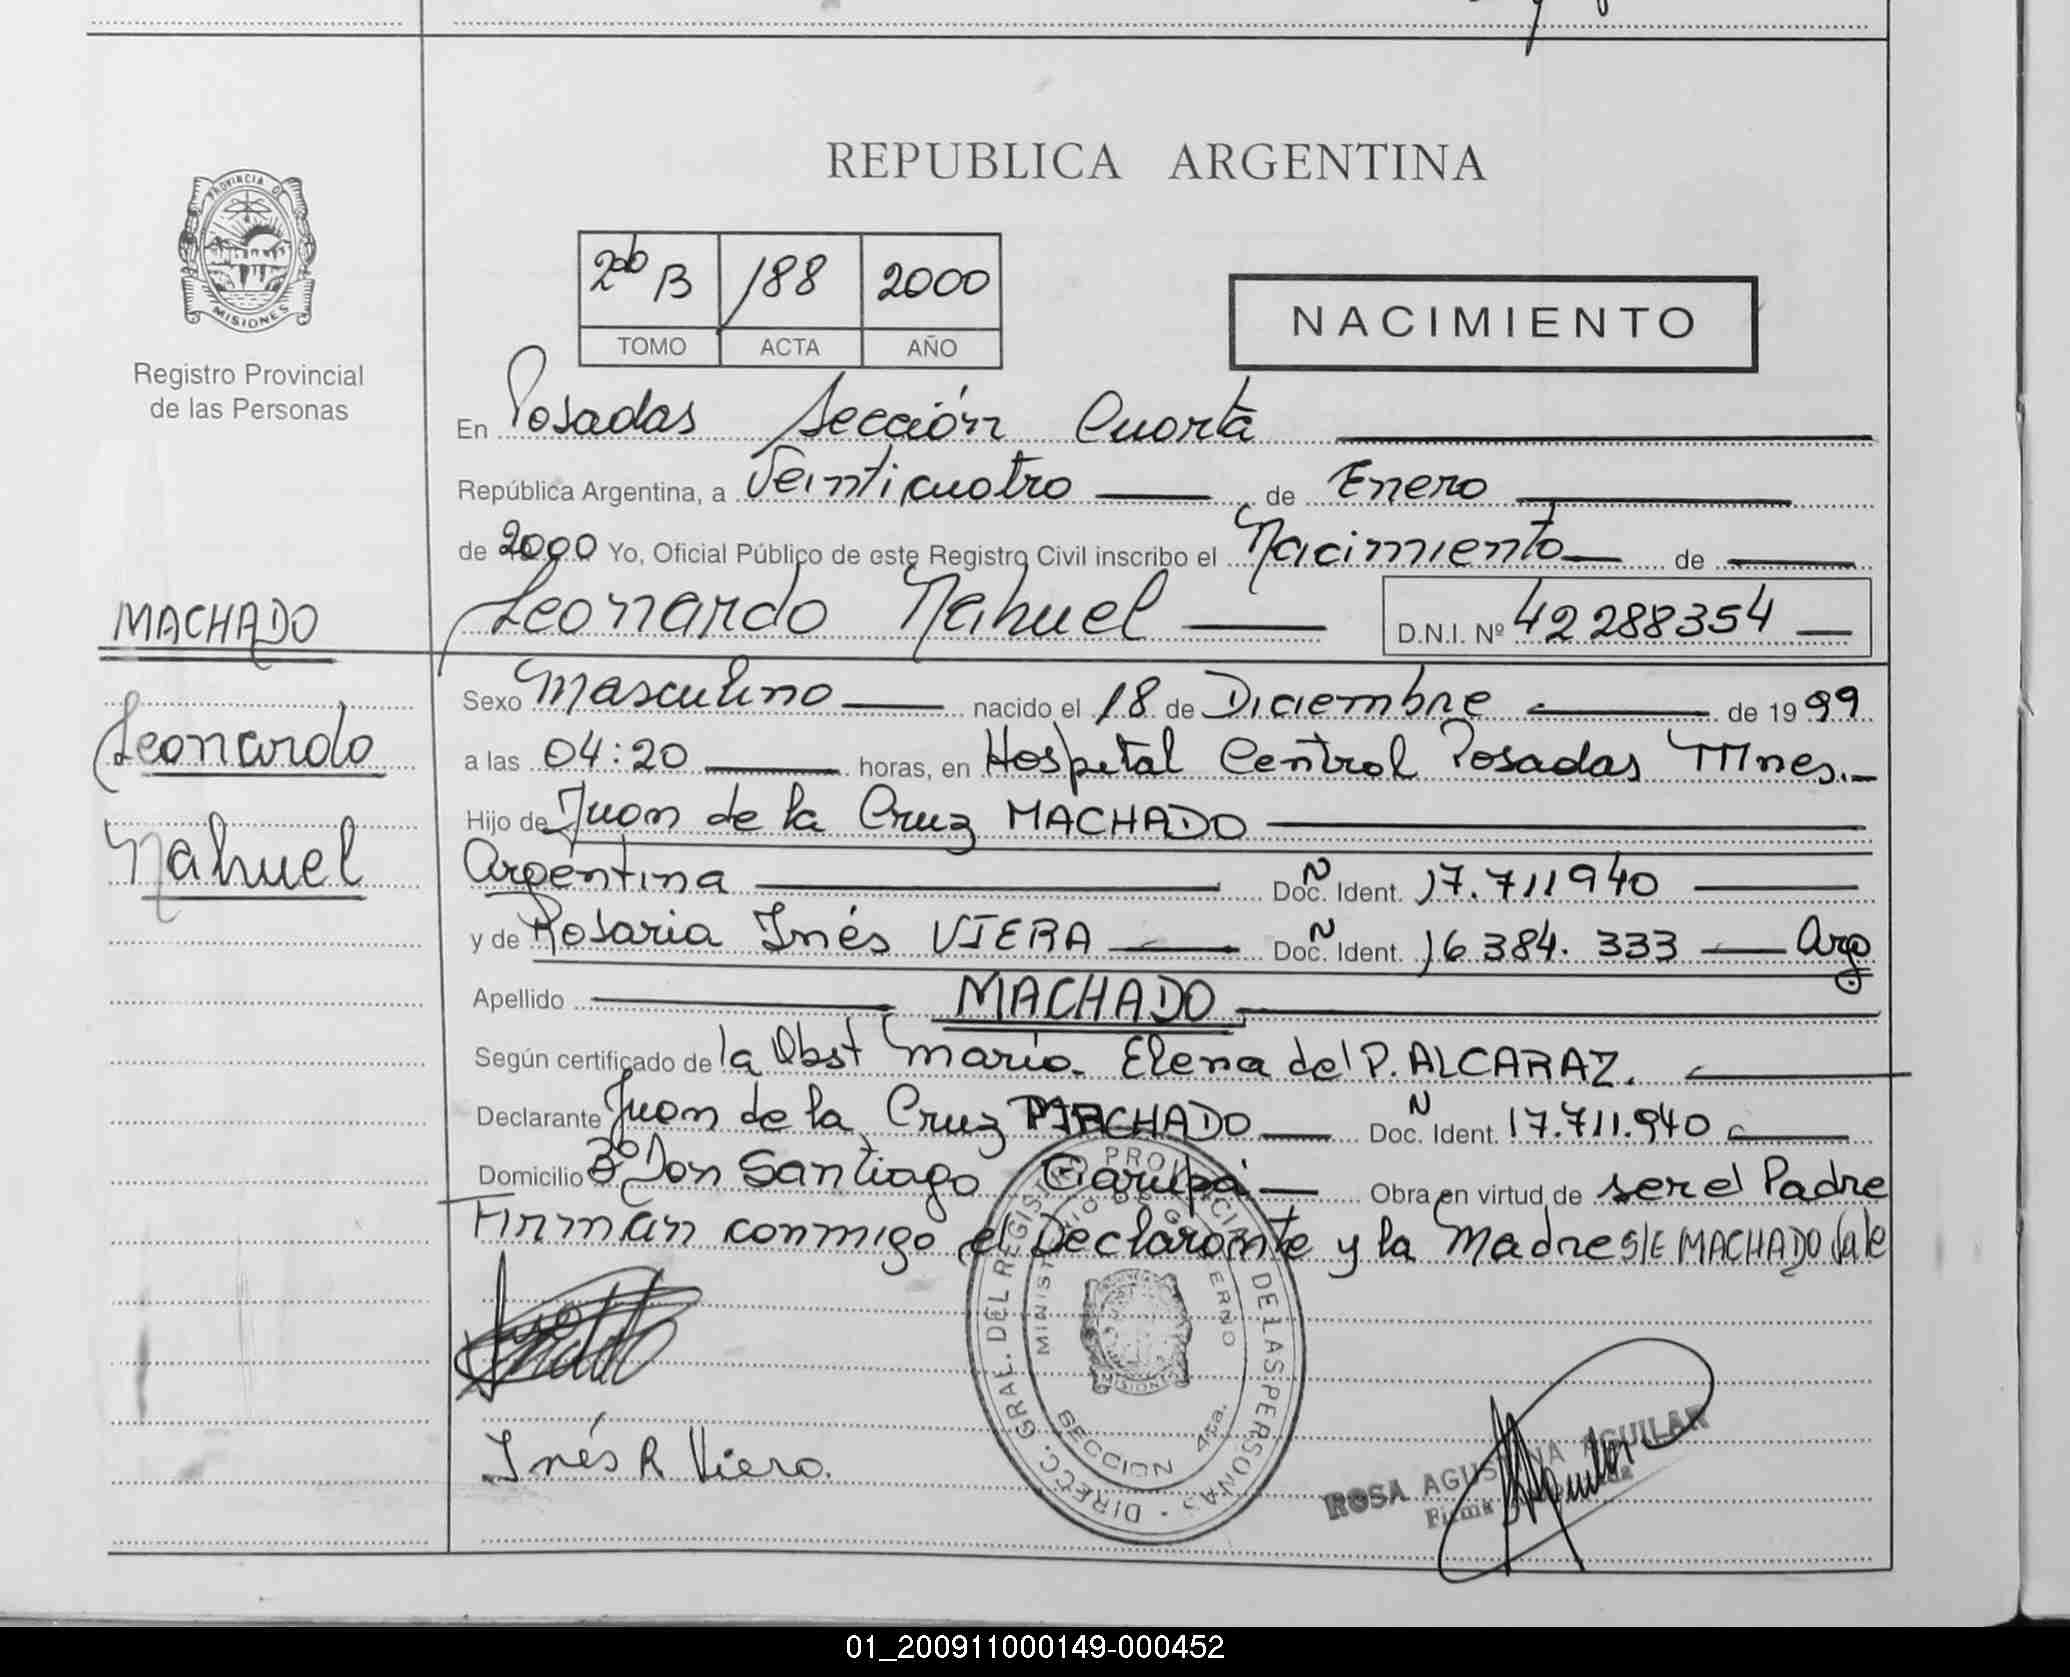 PROVINCIA DE
MISIONES
Registro Provincial
de las Personas
MACHADO
Leonardo
Nahuel
REPUBLICA ARGENTINA
2do B 188 2000
TOMO ACTA AÑO
NACIMIENTO
En Posadas Sección Cuarta
República Argentina, a Veinticuatro de Enero
de 2000 Yo, Oficial Público de este Registro Civil inscribo el Nacimiento de
Leonardo Nahuel D.N.I. Nº 42288354
Sexo Masculino nacido el 18 de Diciembre de 1999
a las 04:20 horas, en Hospital Central Posadas Mnes.
Hijo de Juan de la Cruz MACHADO
Argentina Doc. Ident. N 17.711940
y de Rosaria Inés VIERA Doc. Ident. N 16384.333 Arg
Apellido MACHADO
Según certificado de la Obst María Elena del P. ALCARAZ.
Declarante Juan de la Cruz MACHADO Doc. Ident. N 17.711.940
Domicilio Bº Don Santiago Garupá Obra en virtud de ser el Padre
Firman conmigo el Declarante y la Madre S/E MACHADO Vale
DIRECC. GRAL. DEL REGISTRO PROVINCIAL DE LAS PERSONAS
MINISTERIO DE GOBIERNO
MISIONES
SECCION 4ta.
Inés R Viera.
ROSA AGUSTINA AGUILAR
Firma
01_200911000149-000452